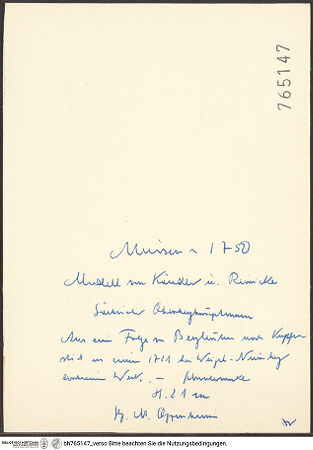 765147
Meissen ~ 1750
Modell von Kändler u. Reinicke
Sächsischer Oberberghauptmann
Aus einer Folge v. Bergleuten nach Kupfer-
stich in einem 1721 bei Weigel-Nürnberg
erschienenen Werk. –
H. 21 cm
M. Oppenheim
bh765147_verso Bitte beachten Sie die Nutzungsbedingungen.